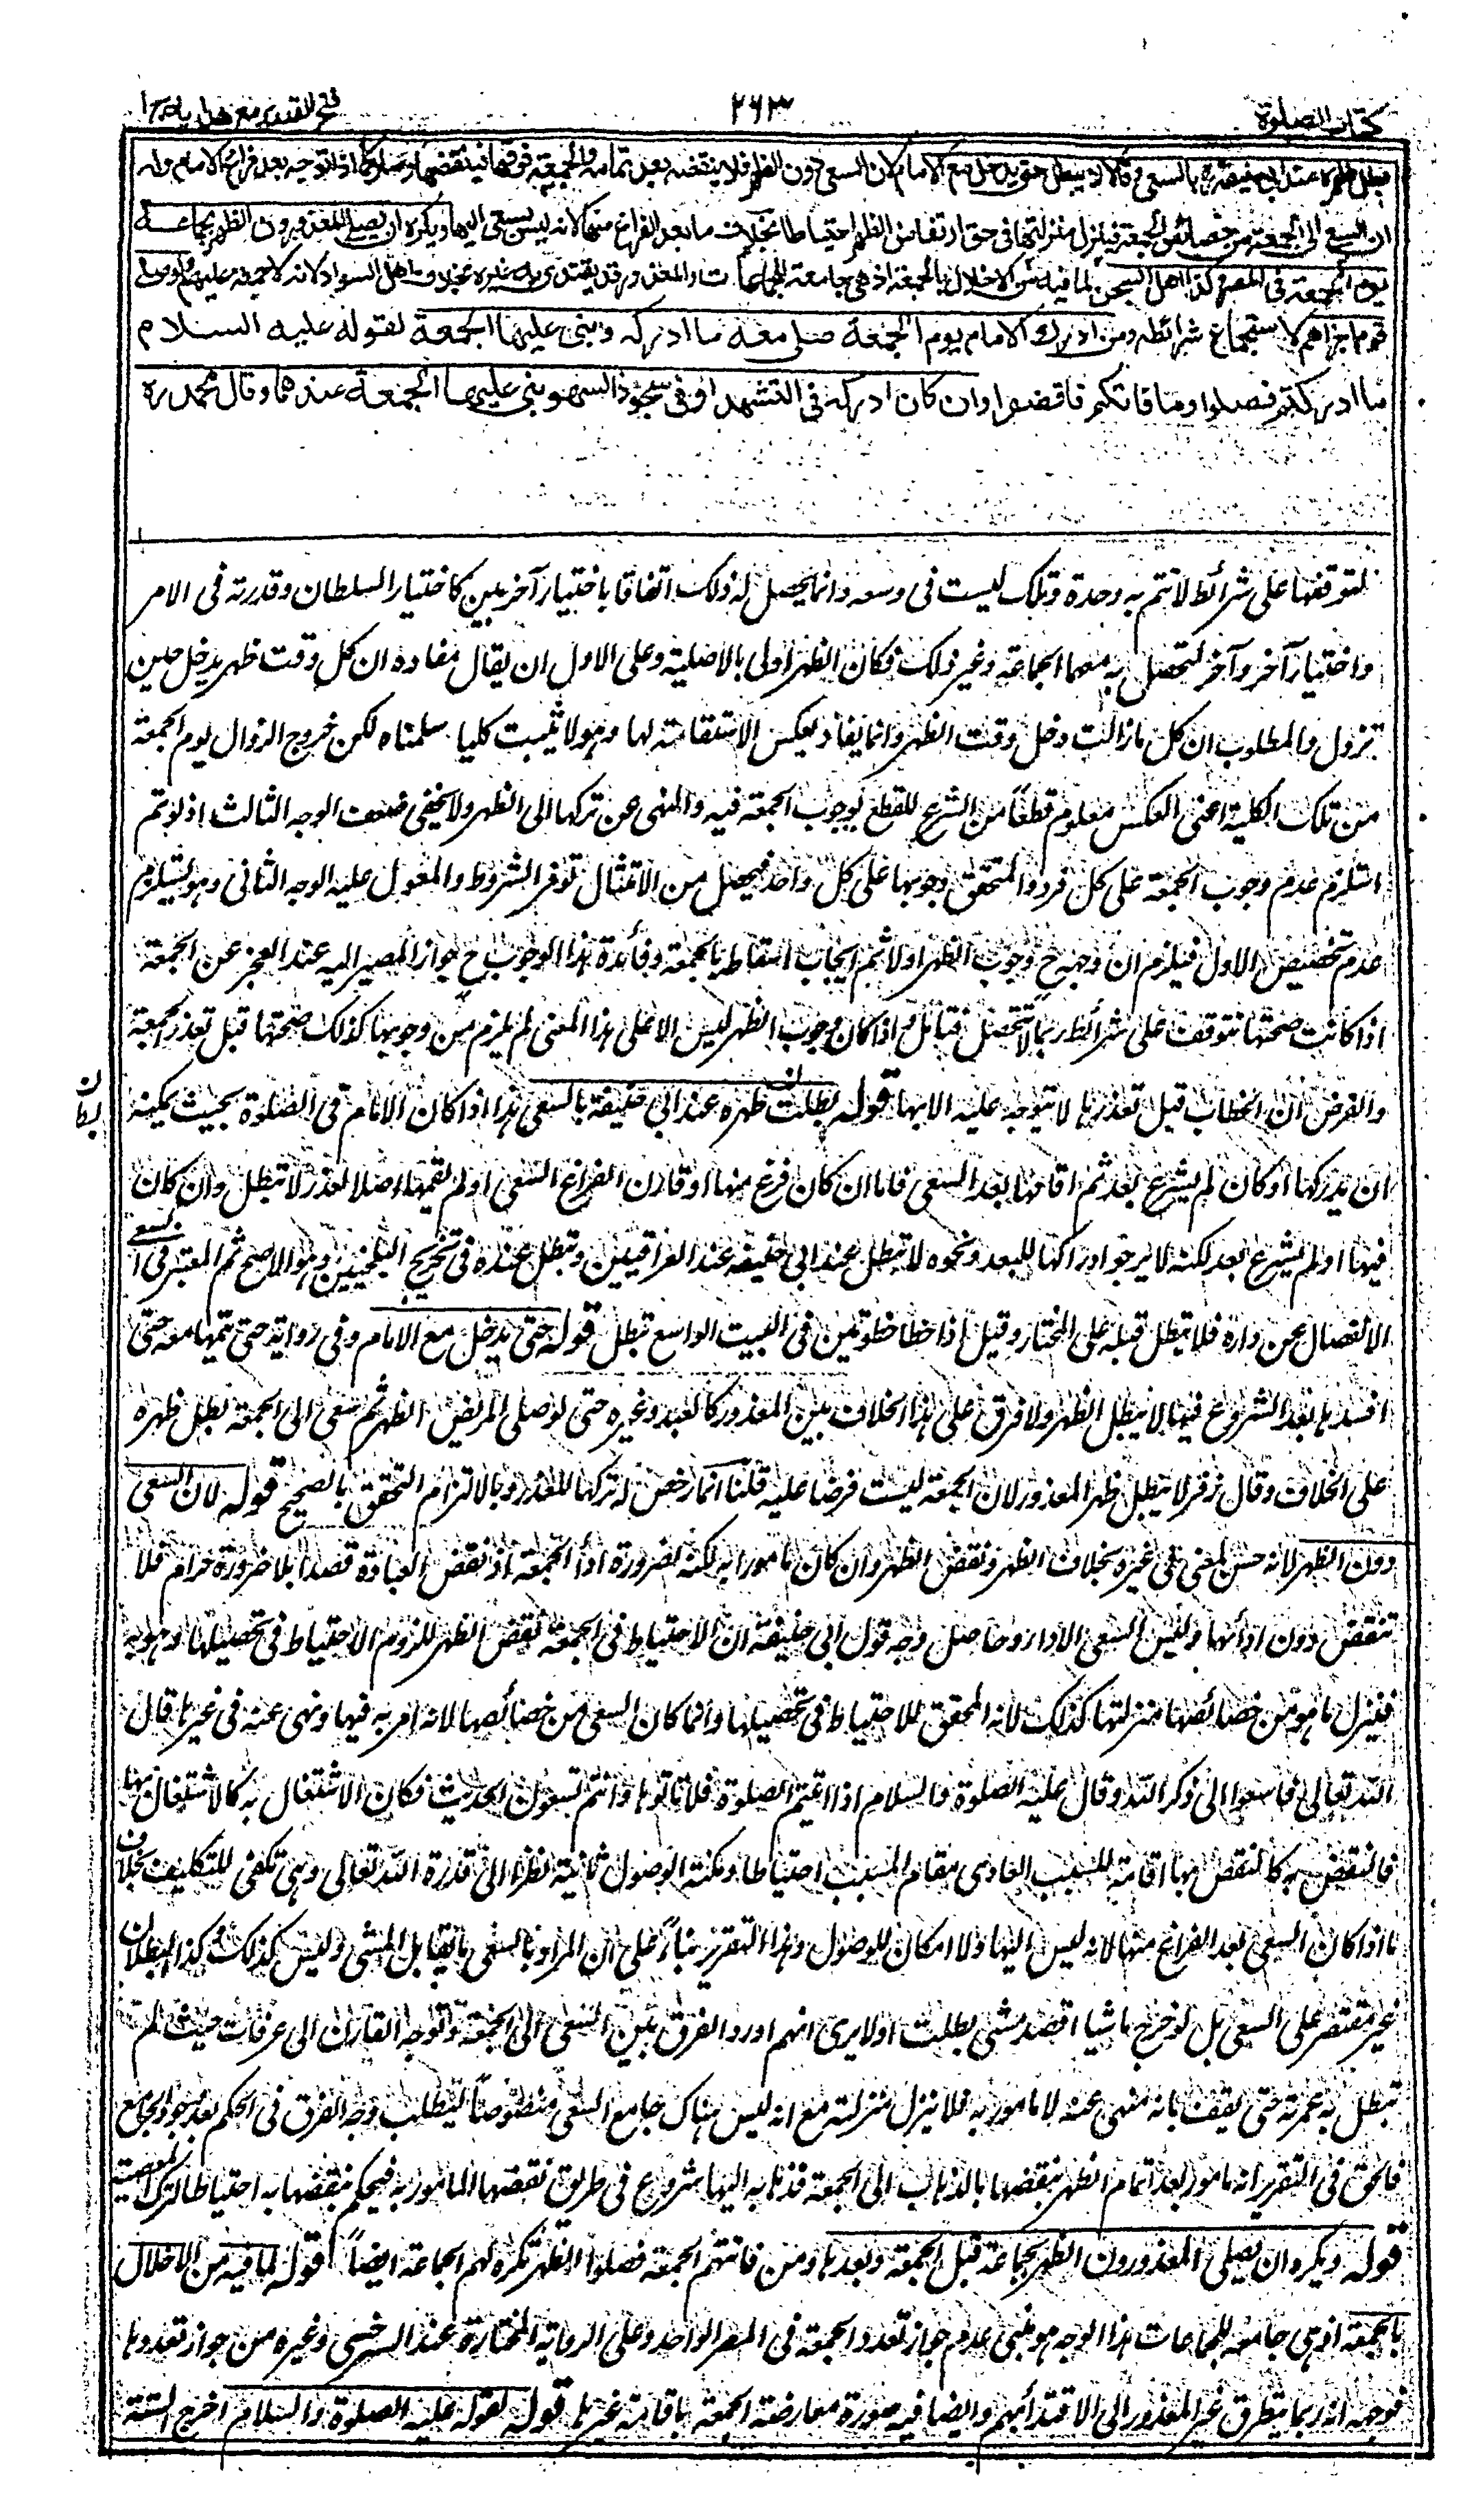 كتاب الصلوة
٢٦٣
فتح القدير مع هدايه ج١
بطل ظهره عند ابي حنيفة ره بالسعي وقالا لا يبطل حتى يدخل مع الامام لان السعي دون الظهر فلا ينقضه بعد تمامه والجمعة فوقها فينقضها وصار كما اذا توجه بعد فراغ الامام وله
ان السعي الى الجمعة من خصائص الجمعة فينزل منزلتها في حق ارتفاض الظهر احتياطا بخلاف ما بعد الفراغ منها لانه ليس بسعي اليها ويكره ان يصلي المعذورون الظهر بجماعة
يوم الجمعة في المصر وكذا اهل السجن لما فيه من الاخلال بالجمعة اذ هي جامعة للجماعات والمعذور قد يقتدي به غيره بخلاف اهل السواد لانه لا جمعة عليهم ولو صلى
قوم اجزاهم لاستجماع شرائطه ومن ادرك الامام يوم الجمعة صلى معه ما ادركه وبنى عليها الجمعة لقوله عليه السلام
ما ادركتم فصلوا وما فاتكم فاقضوا وان كان ادركه في التشهد او في سجود السهو بنى عليها الجمعة عندهما وقال محمد ره
لتوقفها على شرائط لا تتم به وحده وتلك ليست في وسعه وانما يحصل له ذلك اتفاقا باختيار آخرين كاختيار السلطان وقدرته في الامر
واختيار آخر وآخر لتحصل به معهما الجماعة وغير ذلك فكان الظهر اولى بالاصلية وعلى الاول ان يقال مفاده ان كل وقت ظهر يدخل حين
تزول والمطلوب ان كل ما زالت دخل وقت الظهر وانما يفاد بعكس الاستقامة لها وهو لا يثبت كليا سلمناه لكن خروج الزوال يوم الجمعة
من تلك الكلية اعني العكس معلوم قطعًا من الشرع للقطع بوجوب الجمعة فيه والنهي عن تركها الى الظهر ولا يخفى ضعف الوجه الثالث اذ لو تم
استلزم عدم وجوب الجمعة على كل فرد والمتحقق وجوبها على كل واحد فيحصل من الامتثال توفر الشروط والمعول عليه الوجه الثاني وهو يستلزم
عدم تخصيص الاول فيلزم ان وجبه ح وجوب الظهر اولا ثم ايجاب اسقاطه بالجمعة وفائدة هذا الوجوب ح جواز المصير اليه عند العجز عن الجمعة
اذا كانت صحتها تتوقف على شرائط ربما لا تتحصل فتامل واذا كان وجوب الظهر ليس الا على هذا المعنى لم يلزم من وجوبها كذلك صحتها قبل تعذر الجمعة
والفرض ان الخطاب قبل تعذرها لا يتوجه عليه الا بها قوله بطلت ظهره عند ابي حنيفة بالسعي هذا اذا كان الامام في الصلوة بحيث يمكنه
ان يدركها او كان لم يشرع بعد ثم اقامها بعد السعي فاما ان كان فرغ منها او قارن الفراغ السعي او لم يقمها اصلا لعذر لا تبطل وان كان
فيها او لم يشرع بعد لكنه لا يرجو ادراكها للبعد ونحوه لا تبطل عند ابي حنيفة عند العراقيين وتبطل عنده في تخريج البلخيين وهو الاصح ثم المعتبر في السعي
الانفصال عن داره فلا تبطل قبله على المختار وقيل اذا خطا خطوتين في البيت الواسع تبطل قوله حتى يدخل مع الامام وفي رواية حتى يتمها معه حتى
افسدها بعد الشروع فيها لا يبطل الظهر ولا فرق على هذا الخلاف بين المعذور كالعبد وغيره حتى لو صلى المريض الظهر ثم سعى الى الجمعة بطل ظهره
على الخلاف وقال زفر لا يبطل ظهر المعذور لان الجمعة ليست فرضا عليه قلنا انما رخص له تركها للعذر وبالالتزام التحق بالصحيح قوله لان السعي
دون الظهر لانه حسن لمعنى في غيره بخلاف الظهر ونقض الظهر وان كان مامورا به لكنه لضرورة اداء الجمعة اذ نقض العبادة قصدا بلا ضرورة حرام فلا
تنقض دون ادائها وليس السعي الاداء وحاصل وجه قول ابي حنيفة ان الاحتياط في الجمعة نقض الظهر للزوم الاحتياط في تحصيلها وهو به
فينزل ما هو من خصائصها منزلتها كذلك لانه المحقق للاحتياط في تحصيلها وانما كان السعي من خصائصها لانه امر به فيها ونهي عنه في غيرها قال
الله تعالى فاسعوا الى ذكر الله وقال عليه الصلوة والسلام اذا اقيمت الصلوة فلا تاتوها وانتم تسعون الحديث فكان الاشتغال به كالاشتغال بها
فالنقض به كالنقض بها اقامة للسبب العادي مقام المسبب احتياطا ومكنة الوصول ثابتة نظرا الى قدرة الله تعالى وهي تكفي للتكليف بخلاف
ما اذا كان السعي بعد الفراغ منها لانه ليس اليها ولا امكان للوصول وهذا التقرير بناءً على ان المراد بالسعي ما يقابل المشي وليس كذلك كذا البطلان
غير مقتصر على السعي بل لو خرج ماشيا اقصد مشي بطلت اولا يرى انهم اوردوا الفرق بين السعي الى الجمعة وتوجه القارن الى عرفات حيث لم
تبطل به عمرته حتى يقف بانه منهي عنه لا مامور به فلا ينزل منزلته مع انه ليس هناك جامع السعي منصوصا ليتطلب وجه الفرق في الحكم بعد وجود الجامع
فالحق في التقرير انه مامور بعد اتمام الظهر بنقضها بالذهاب الى الجمعة فذهابه اليها شروع في طريق نقضها المامور به فيحكم بنقضها به احتياطا لترك المعصية
قوله ويكره ان يصلي المعذورون الظهر بجماعة قبل الجمعة وبعدها ومن فاتتهم الجمعة فصلوا الظهر تكره لهم الجماعة ايضاً قوله لما فيه من الاخلال
بالجمعة اذ هي جامعة للجماعات هذا الوجه هو مبني عدم جواز تعدد الجمعة في المصر الواحد وعلى الرواية المختارة عند السرخسي وغيره من جواز تعددها
فوجهه انه ربما يتطرق غير المعذور الى الاقتداء بهم وايضا فيه صورة معارضة الجمعة باقامة غيرها قوله لقوله عليه الصلوة والسلام اخرج الستة